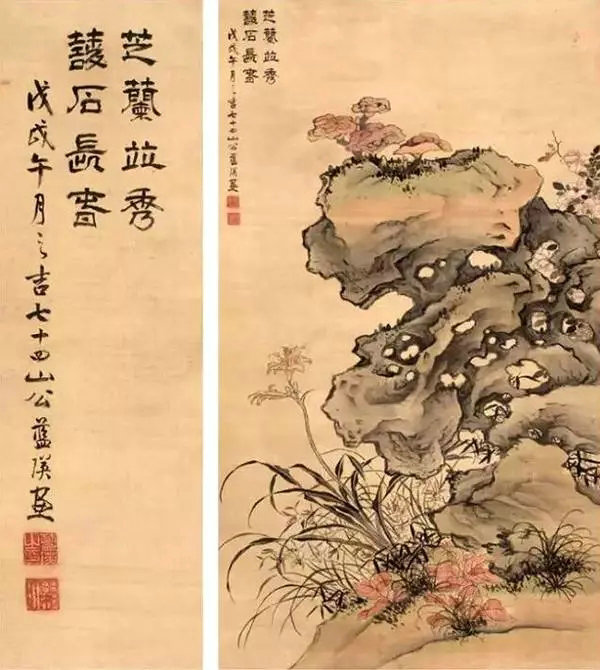 芝蘭竝秀
蘐石長春
戊戌午月之吉七十四山公藍瑛畫
芝蘭竝秀
蘐石長春
戊戌午月之吉七十四山公藍瑛畫